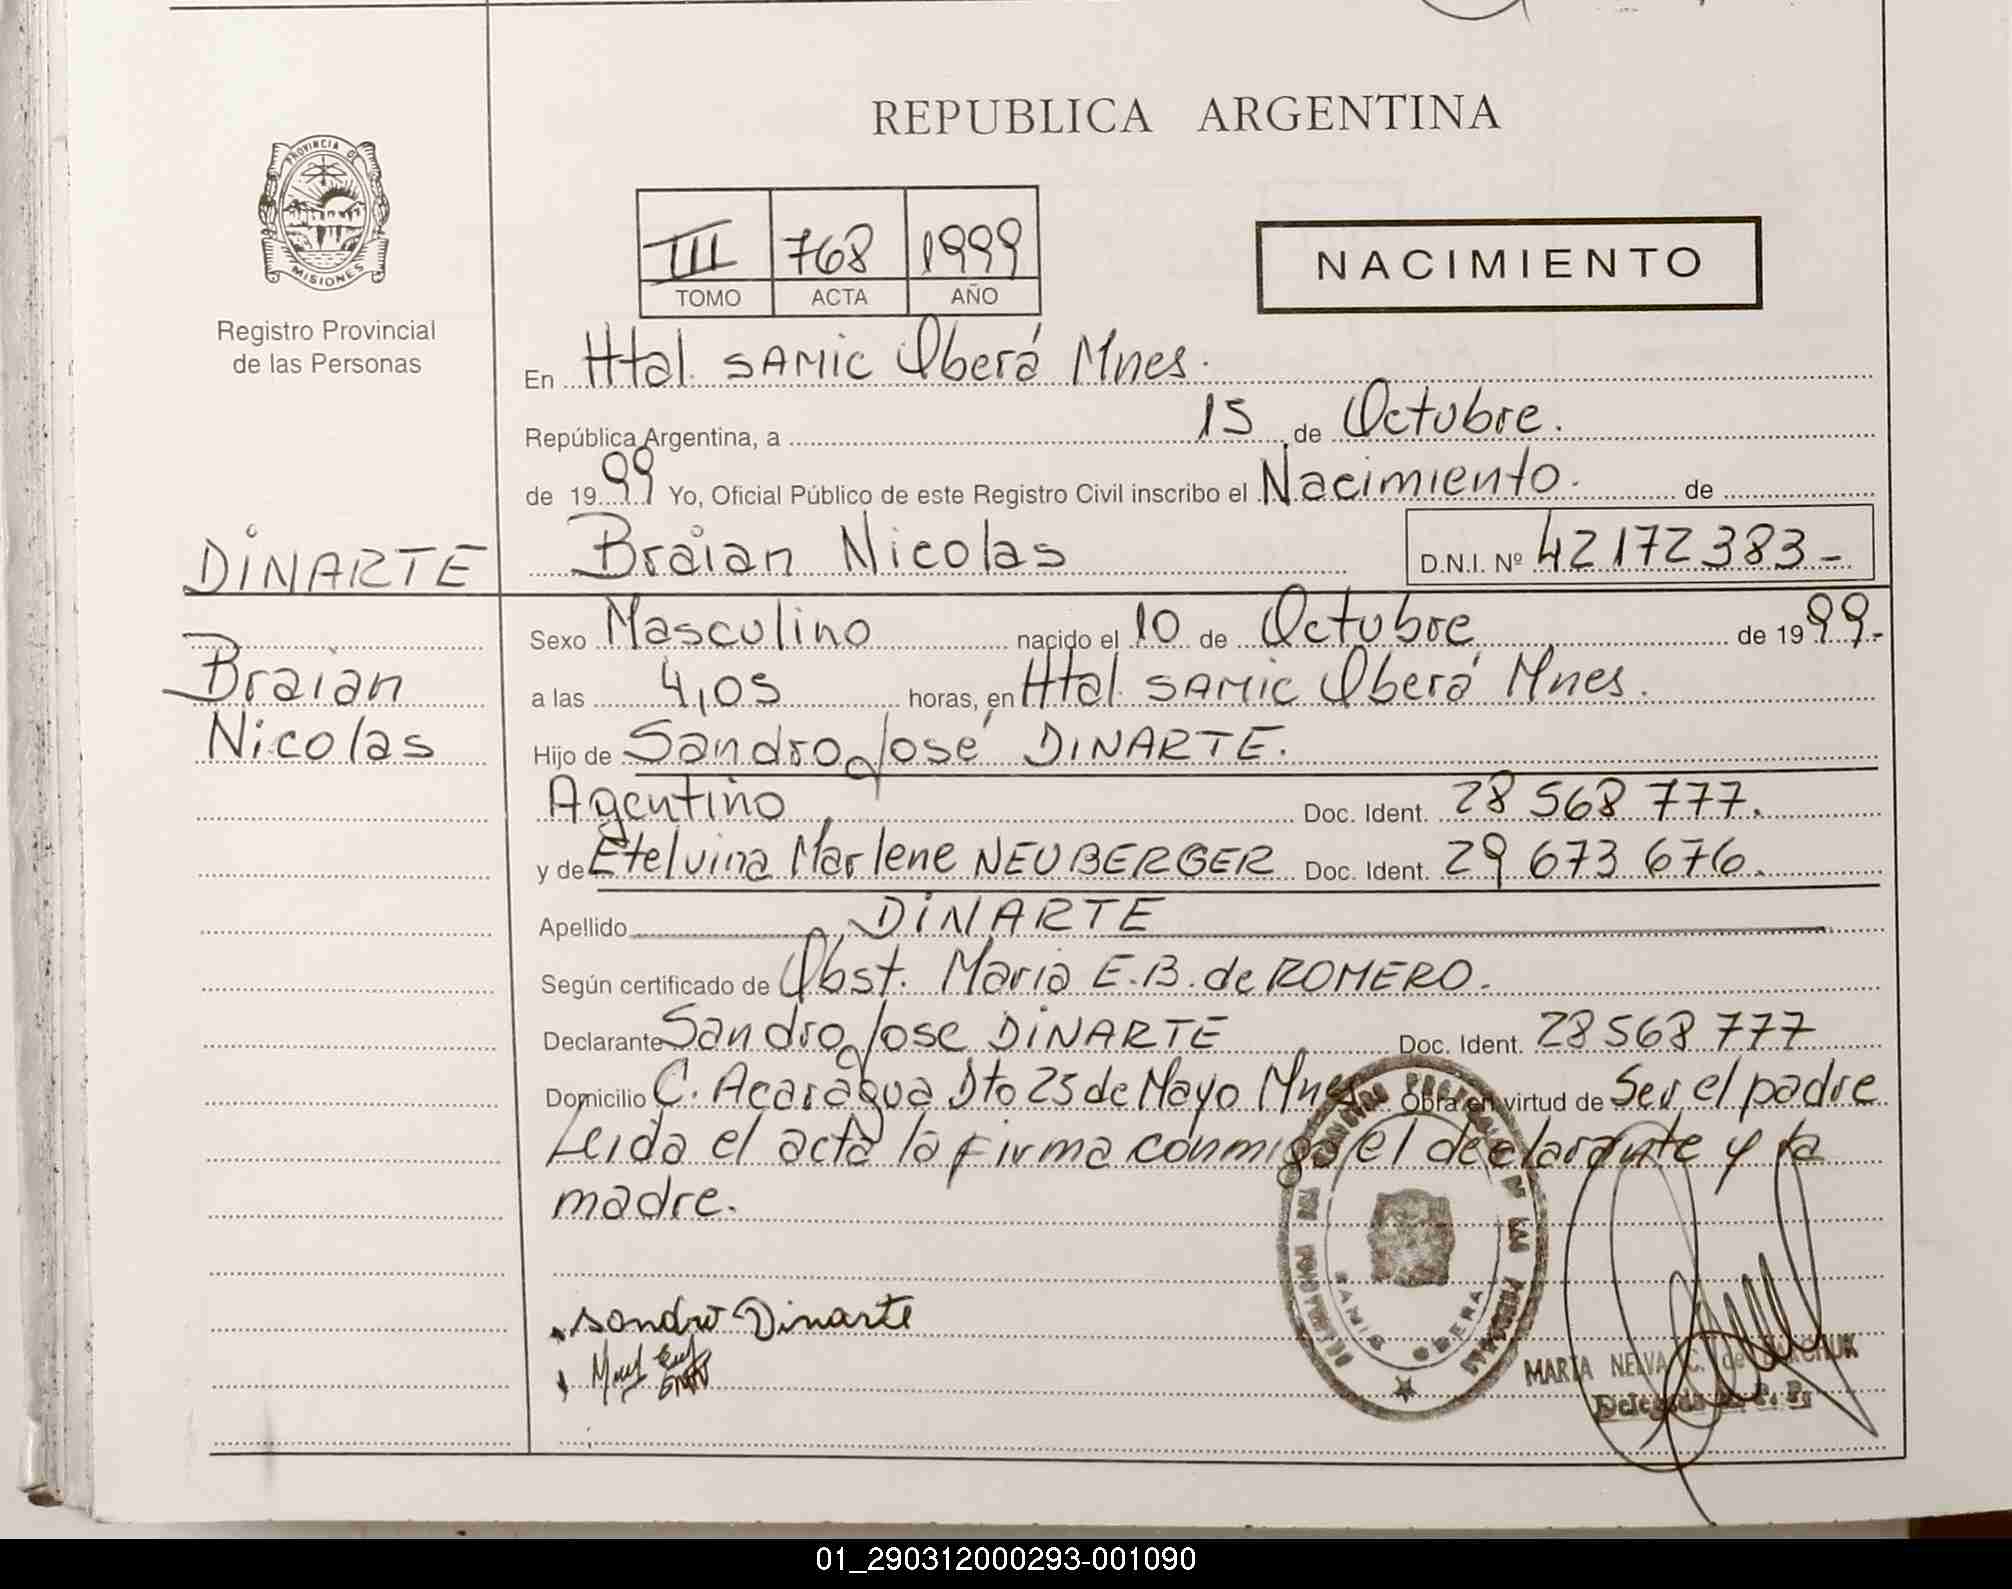 REPUBLICA ARGENTINA
PROVINCIA DE
MISIONES
Registro Provincial
de las Personas
III 768 1999
TOMO ACTA AÑO
NACIMIENTO
En Htal. SAMIC Oberá Mnes.
República Argentina, a 15 de Octubre.
de 1999 Yo, Oficial Público de este Registro Civil inscribo el Nacimiento. de
DINARTE Braian Nicolas D.N.I. Nº 42172383-
Sexo Masculino nacido el 10 de Octubre de 1999.-
Braian
a las 4,05 horas, en Htal. SAMIC Oberá Mnes.
Nicolas
Hijo de Sandro José DINARTE.
Agentino Doc. Ident. 28 568 777.
y de Etelvina Marlene NEUBERGER Doc. Ident. 29 673 676.
Apellido DINARTE
Según certificado de Obst. Maria E.B. de ROMERO.
Declarante Sandro Jose DINARTE Doc. Ident. 28568 777
Domicilio C. Acaragua Dto 25 de Mayo Mnes. Obra en virtud de Ser el padre
Leida el acta la firma conmigo el declarante y la
madre.
Sandro Dinarte
SAMIC OBERA
MARTA NELVA C. de
Delegada R. P. P.
01_290312000293-001090